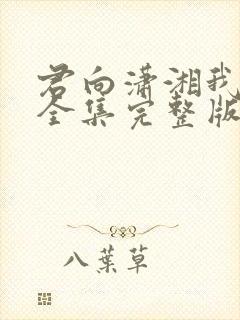 君向潇湘我
全集完整版
八葉草